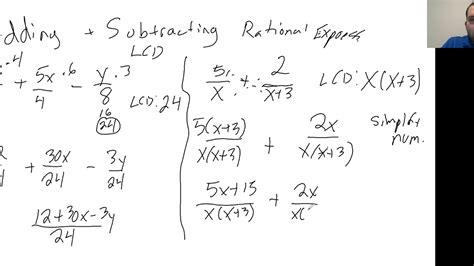 dding + Subtracting Rational Expressi
LCD
·4
+ 5x/4 ·6 - y/8 ·3
LCD: 24
16
24
+ 30x/24 - 3y/24
12+30x-3y/24
5/x + 2/x+3 LCD: X(X+3)
5(x+3)/x(x+3) + 2x/x(x+3) simplify num.
5x+15/x(x+3) + 2x/x(